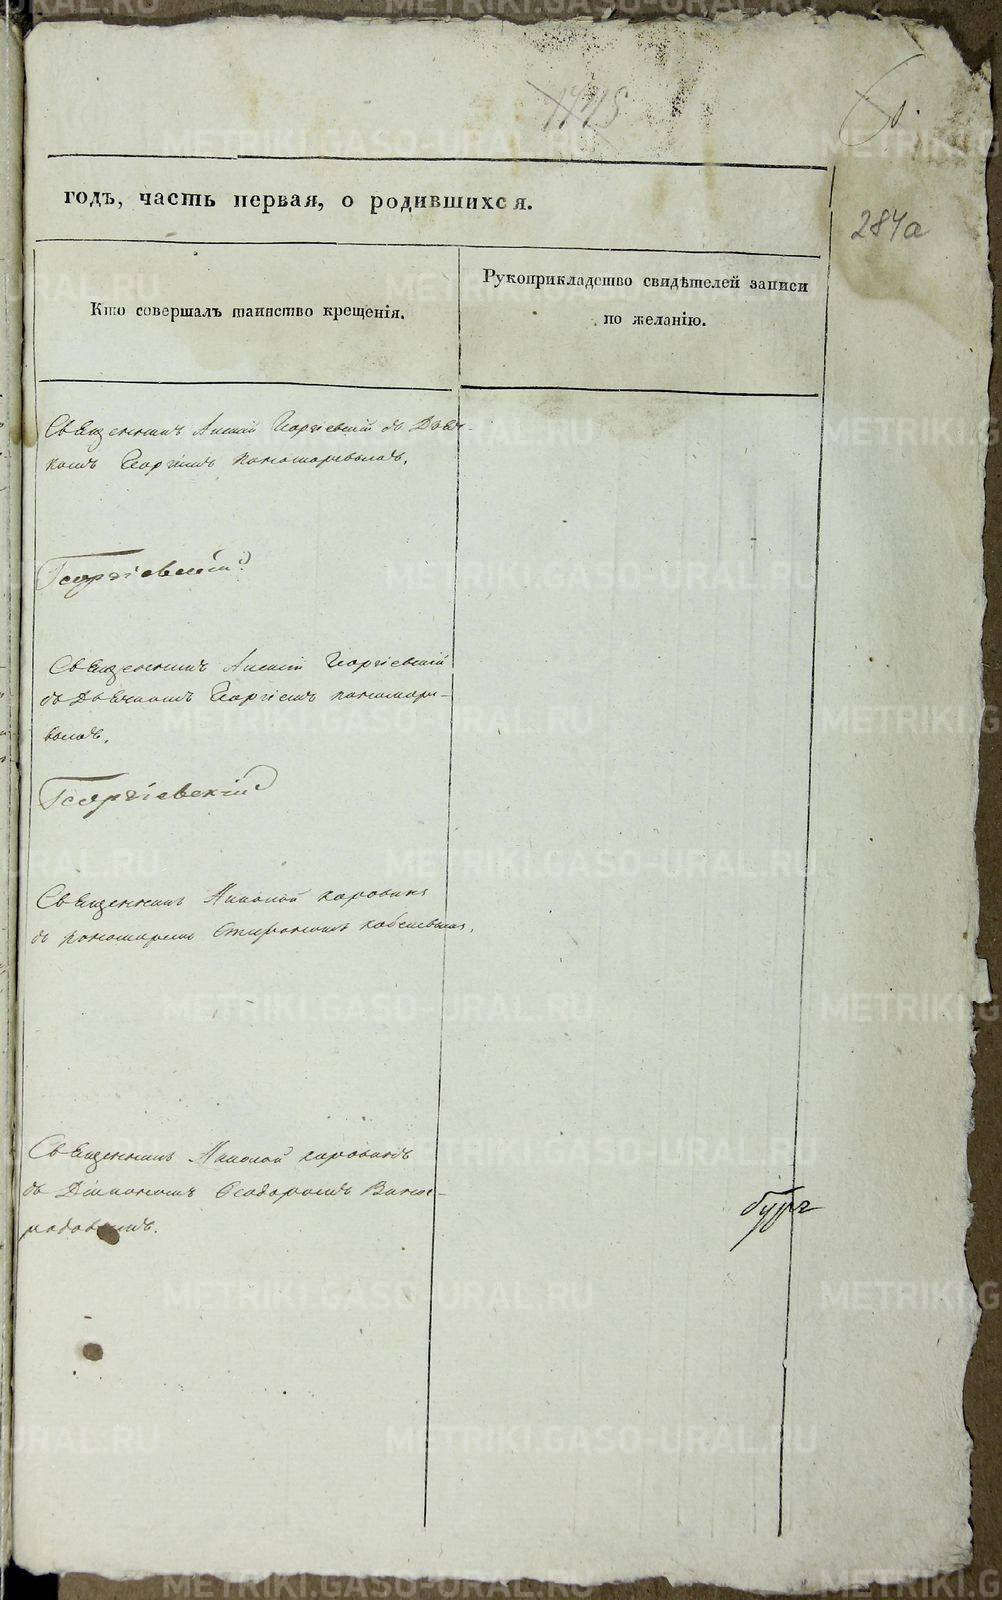 1145
284а
годъ, часть первая, о родившихся.
Кто совершалъ таинство крещенія.
Рукоприкладство свидѣтелей записи
по желанію.
Священникъ Георгіевскій съ Дьяч-
комъ Георгіемъ Пономаревымъ.
Георгіевскій
Священникъ Георгіевскій
съ Дьячкомъ Георгіемъ Пономаре-
вымъ.
Георгіевскій
Священникъ Николай Коровинъ
съ пономаремъ
Священникъ Николай Коровинъ
съ Діакономъ Ѳеодоромъ Виног-
радовымъ.
METRIKI.GASO-URAL.RU